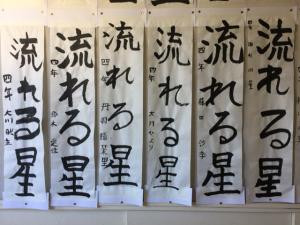 流れる星
四年
流れる星
四年
流れる星
四年 丹羽
流れる星
四年
流れる星
四年
流れる星